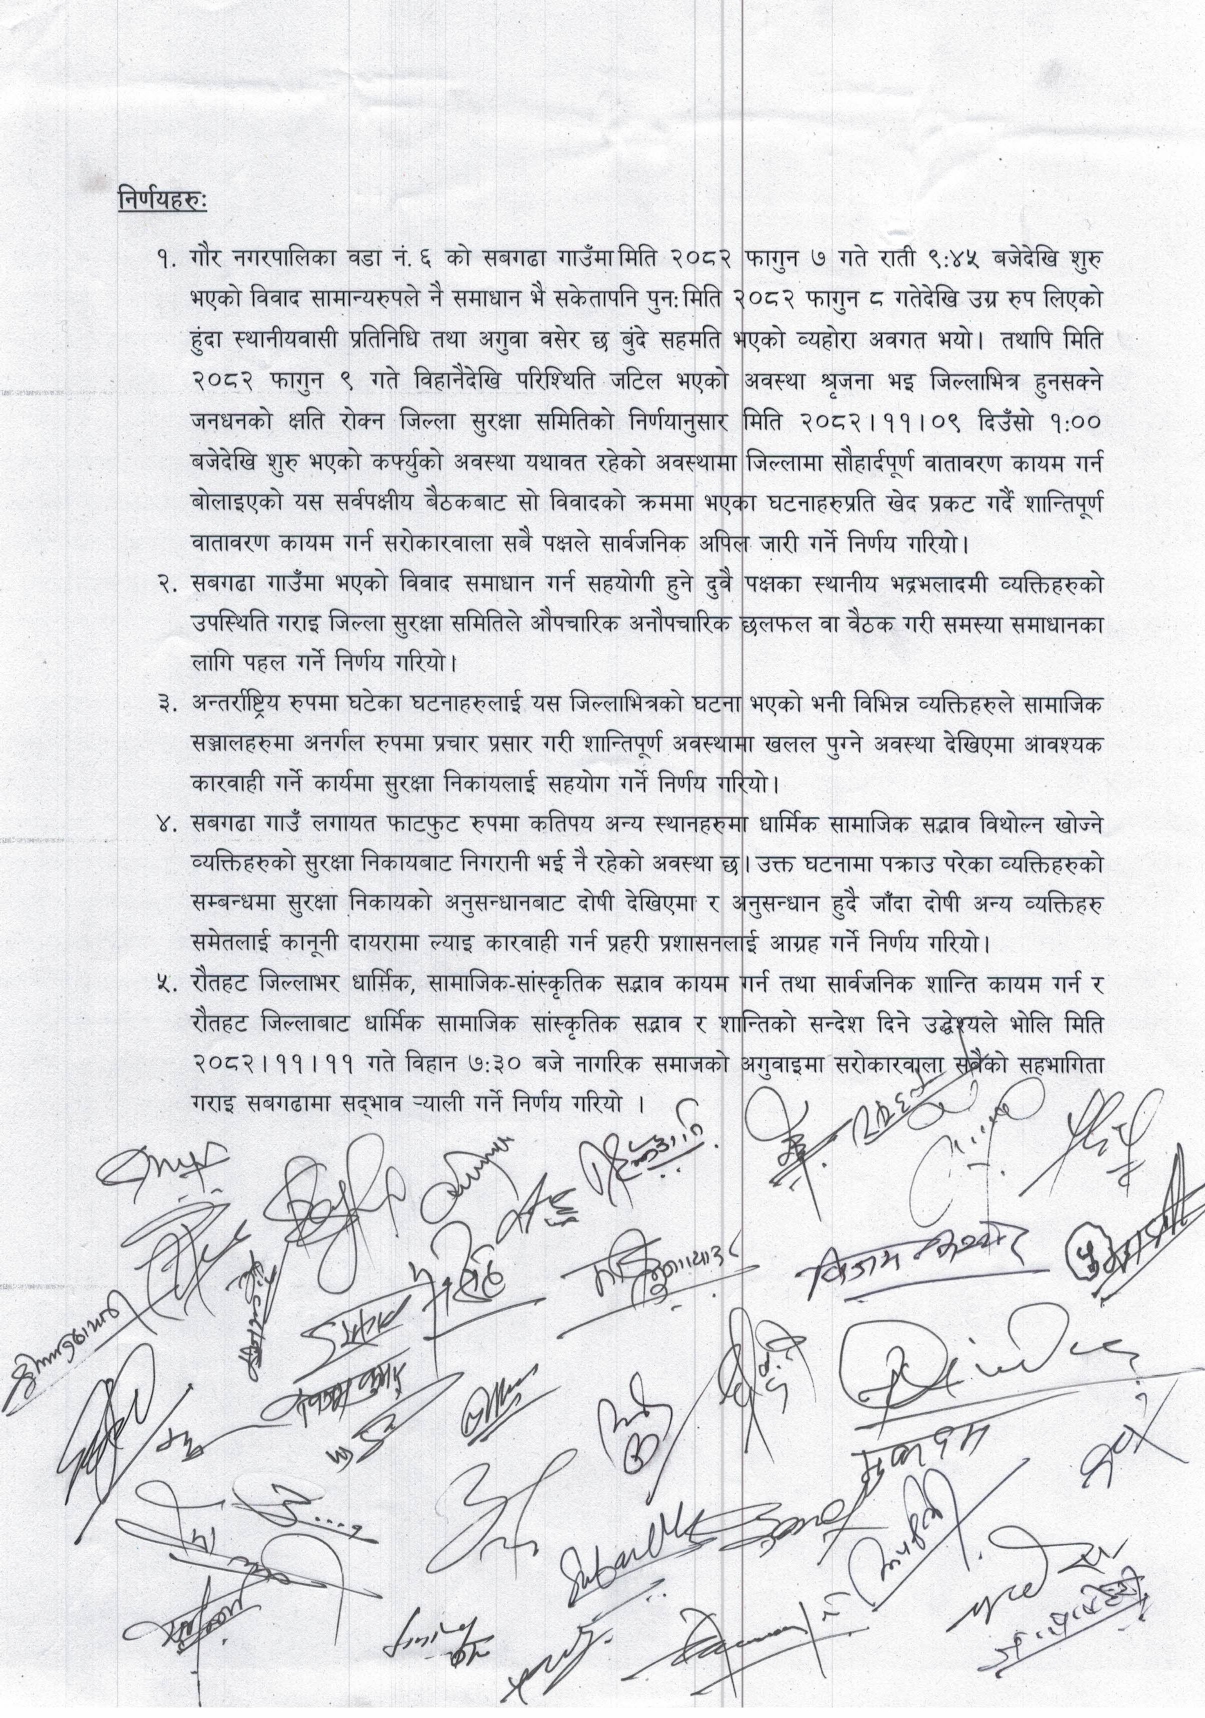 निर्णयहरुः
१. गौर नगरपालिका वडा नं. ६ को सबगढा गाउँमा मिति २०८२ फागुन ७ गते राती ९:४५ बजेदेखि शुरु
भएको विवाद सामान्यरुपले नै समाधान भै सकेतापनि पुनः मिति २०८२ फागुन ८ गतेदेखि उग्र रुप लिएको
हुंदा स्थानीयवासी प्रतिनिधि तथा अगुवा वसेर छ बुंदे सहमति भएको व्यहोरा अवगत भयो। तथापि मिति
२०८२ फागुन ९ गते विहानैदेखि परिश्थिति जटिल भएको अवस्था श्रृजना भइ जिल्लाभित्र हुनसक्ने
जनधनको क्षति रोक्न जिल्ला सुरक्षा समितिको निर्णयानुसार मिति २०८२।११।०९ दिउँसो १:००
बजेदेखि शुरु भएको कर्फ्युको अवस्था यथावत रहेको अवस्थामा जिल्लामा सौहार्दपूर्ण वातावरण कायम गर्न
बोलाइएको यस सर्वपक्षीय बैठकबाट सो विवादको क्रममा भएका घटनाहरुप्रति खेद प्रकट गर्दै शान्तिपूर्ण
वातावरण कायम गर्न सरोकारवाला सबै पक्षले सार्वजनिक अपिल जारी गर्ने निर्णय गरियो।
२. सबगढा गाउँमा भएको विवाद समाधान गर्न सहयोगी हुने दुवै पक्षका स्थानीय भद्रभलादमी व्यक्तिहरुको
उपस्थिति गराइ जिल्ला सुरक्षा समितिले औपचारिक अनौपचारिक छलफल वा बैठक गरी समस्या समाधानका
लागि पहल गर्ने निर्णय गरियो।
३. अन्तर्राष्ट्रिय रुपमा घटेका घटनाहरुलाई यस जिल्लाभित्रको घटना भएको भनी विभिन्न व्यक्तिहरुले सामाजिक
सञ्जालहरुमा अनर्गल रुपमा प्रचार प्रसार गरी शान्तिपूर्ण अवस्थामा खलल पुग्ने अवस्था देखिएमा आवश्यक
कारवाही गर्ने कार्यमा सुरक्षा निकायलाई सहयोग गर्ने निर्णय गरियो।
४. सबगढा गाउँ लगायत फाटफुट रुपमा कतिपय अन्य स्थानहरुमा धार्मिक सामाजिक सद्भाव विथोल्न खोज्ने
व्यक्तिहरुको सुरक्षा निकायबाट निगरानी भई नै रहेको अवस्था छ। उक्त घटनामा पक्राउ परेका व्यक्तिहरुको
सम्बन्धमा सुरक्षा निकायको अनुसन्धानबाट दोषी देखिएमा र अनुसन्धान हुदै जाँदा दोषी अन्य व्यक्तिहरु
समेतलाई कानूनी दायरामा ल्याइ कारवाही गर्न प्रहरी प्रशासनलाई आग्रह गर्ने निर्णय गरियो।
५. रौतहट जिल्लाभर धार्मिक, सामाजिक-सांस्कृतिक सद्भाव कायम गर्न तथा सार्वजनिक शान्ति कायम गर्न र
रौतहट जिल्लाबाट धार्मिक सामाजिक सांस्कृतिक सद्भाव र शान्तिको सन्देश दिने उद्धेश्यले भोलि मिति
२०८२।११।११ गते विहान ७:३० बजे नागरिक समाजको अगुवाइमा सरोकारवाला सबैको सहभागिता
गराइ सबगढामा सद्‌भाव ऱ्याली गर्ने निर्णय गरियो ।